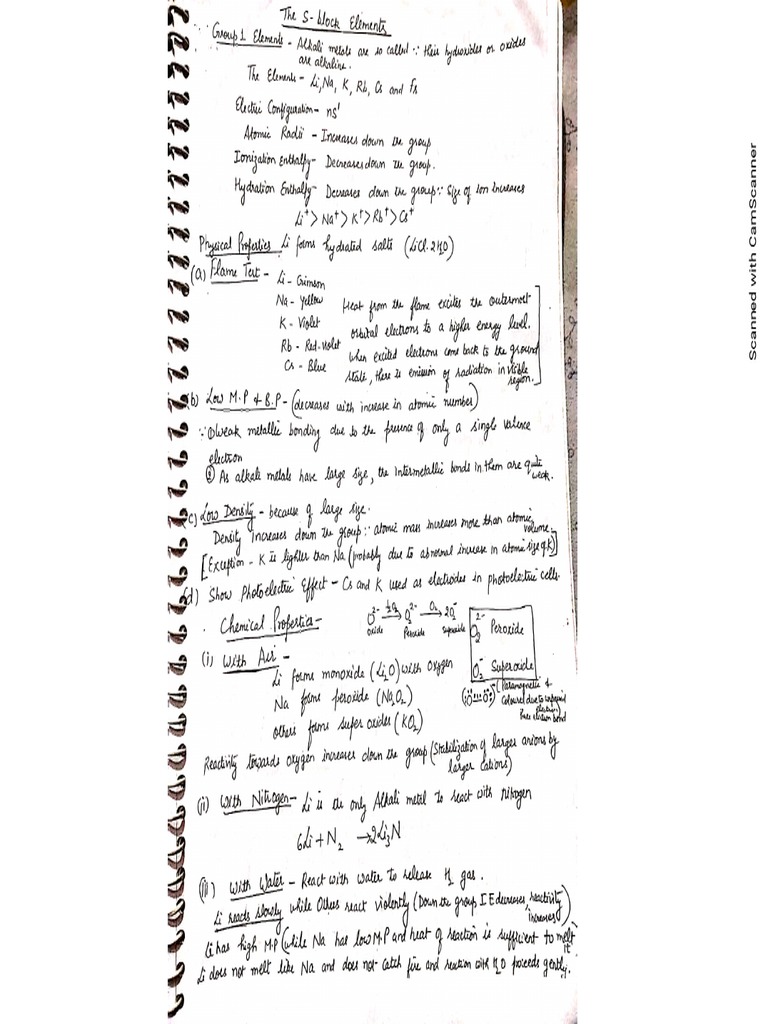 The S-block Elements
Group 1 Elements - Alkali metals are so called ∵ their hydroxides or oxides
are alkaline.
The Elements - Li, Na, K, Rb, Cs and Fr
Electric Configuration - ns¹
Atomic Radii - Increases down the group
Ionization Enthalpy - Decreases down the group.
Hydration Enthalpy - Decreases down the group ∵ Size of ion increases
Li⁺ > Na⁺ > K⁺ > Rb⁺ > Cs⁺
Physical Properties Li forms hydrated salts (LiCl.2H₂O)
(a) Flame Test - Li - Crimson
Na - Yellow
K - Violet
Rb - Red-violet
Cs - Blue
Heat from the flame excites the outermost
orbital electrons to a higher energy level.
when excited electrons come back to the ground
state, there is emission of radiation in visible
region.
(b) Low M.P & B.P - (decreases with increase in atomic number)
∵ ① weak metallic bonding due to the presence of only a single valence
electron
② As alkali metals have large size, the intermetallic bonds in them are quite
weak.
(c) Low Density - because of large size.
Density increases down the group ∵ atomic mass increases more than atomic
volume.
[Exception - K is lighter than Na (probably due to abnormal increase in atomic size of K)]
(d) Show Photoelectric Effect - Cs and K used as electrodes in photoelectric cells.
Chemical Properties -
O²⁻ ½O₂→ O₂²⁻ O₂→ 2O₂⁻
oxide Peroxide Superoxide
O₂²⁻ Peroxide
O₂⁻ Superoxide
(Paramagnetic &
Coloured due to unpaired
electron)
Three electron bond
(i) With Air -
Li forms monoxide (Li₂O) with oxygen
Na forms peroxide (Na₂O₂)
others forms super oxides (KO₂)
Reactivity towards oxygen increases down the group (Stabilization of larger anions by
larger cations)
(ii) With Nitrogen - Li is the only Alkali metal to react with nitrogen
6Li + N₂ → 2Li₃N
(iii) With Water - React with water to release H₂ gas.
Li reacts slowly while Others react violently (Down the group I E decreases, reactivity
increases)
Li has high M.P (while Na has low M.P and heat of reaction is sufficient to melt
it
Li does not melt like Na and does not catch fire and reaction with H₂O proceeds gently.
Scanned with CamScanner